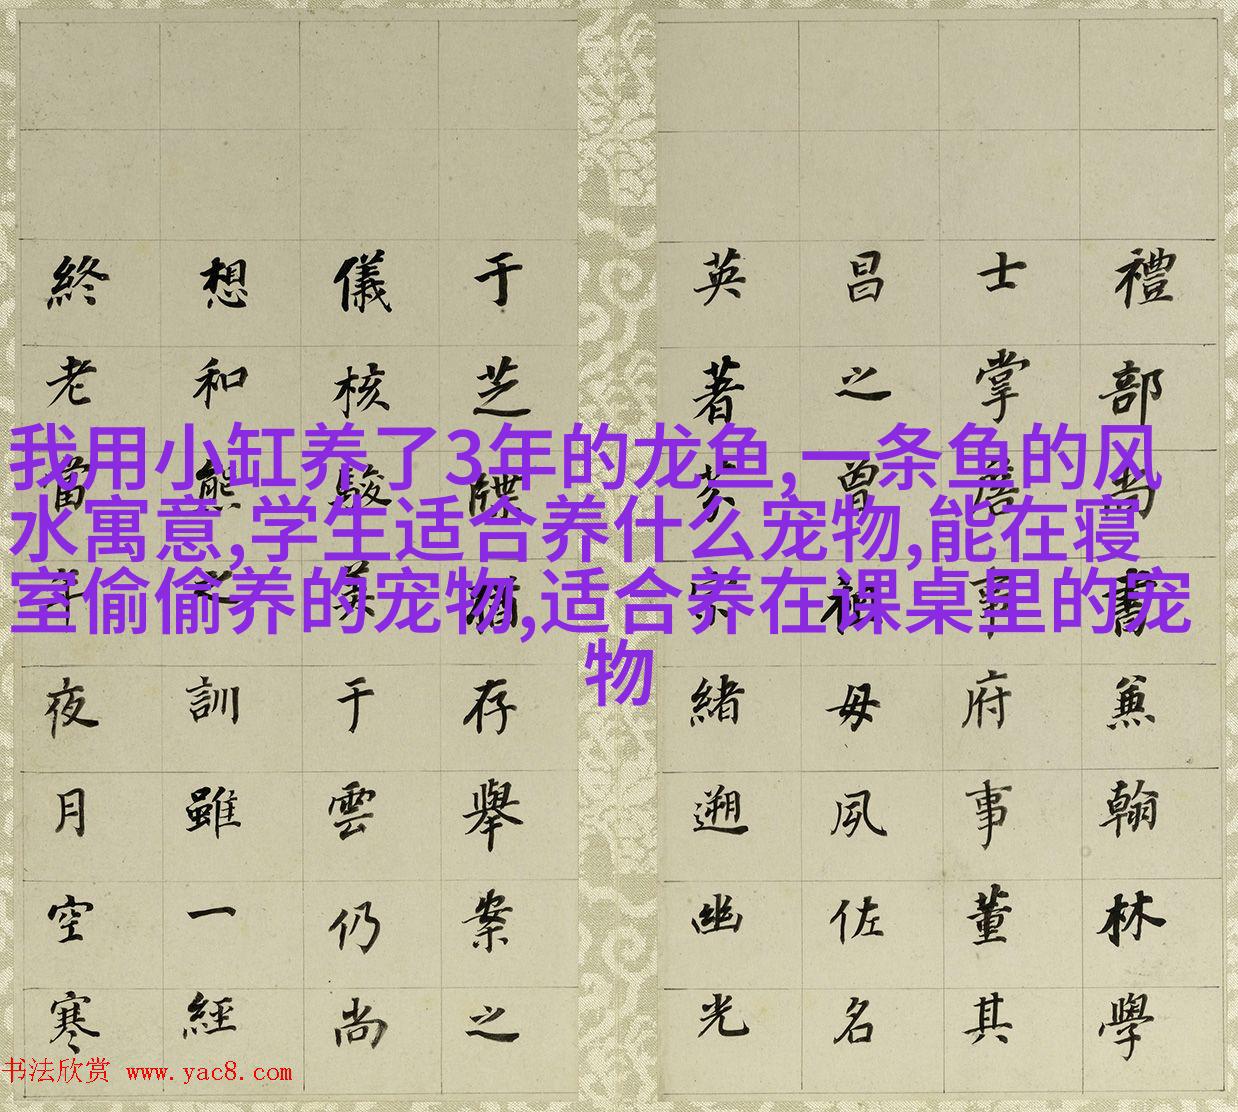 禮部尚書兼翰林學
士掌詹事府事董其
昌之曾祖母夙佐名
英著芬緒遡幽光
于芝牒猶存舉案之
儀核駿于雲仍尚
想和熊之訓雖一經
終老當夜月空寒
我用小缸养了3年的龙鱼,一条鱼的风
水寓意,学生适合养什么宠物,能在寝
室偷偷养的宠物,适合养在课桌里的宠
物
书法欣赏 www.yac8.com